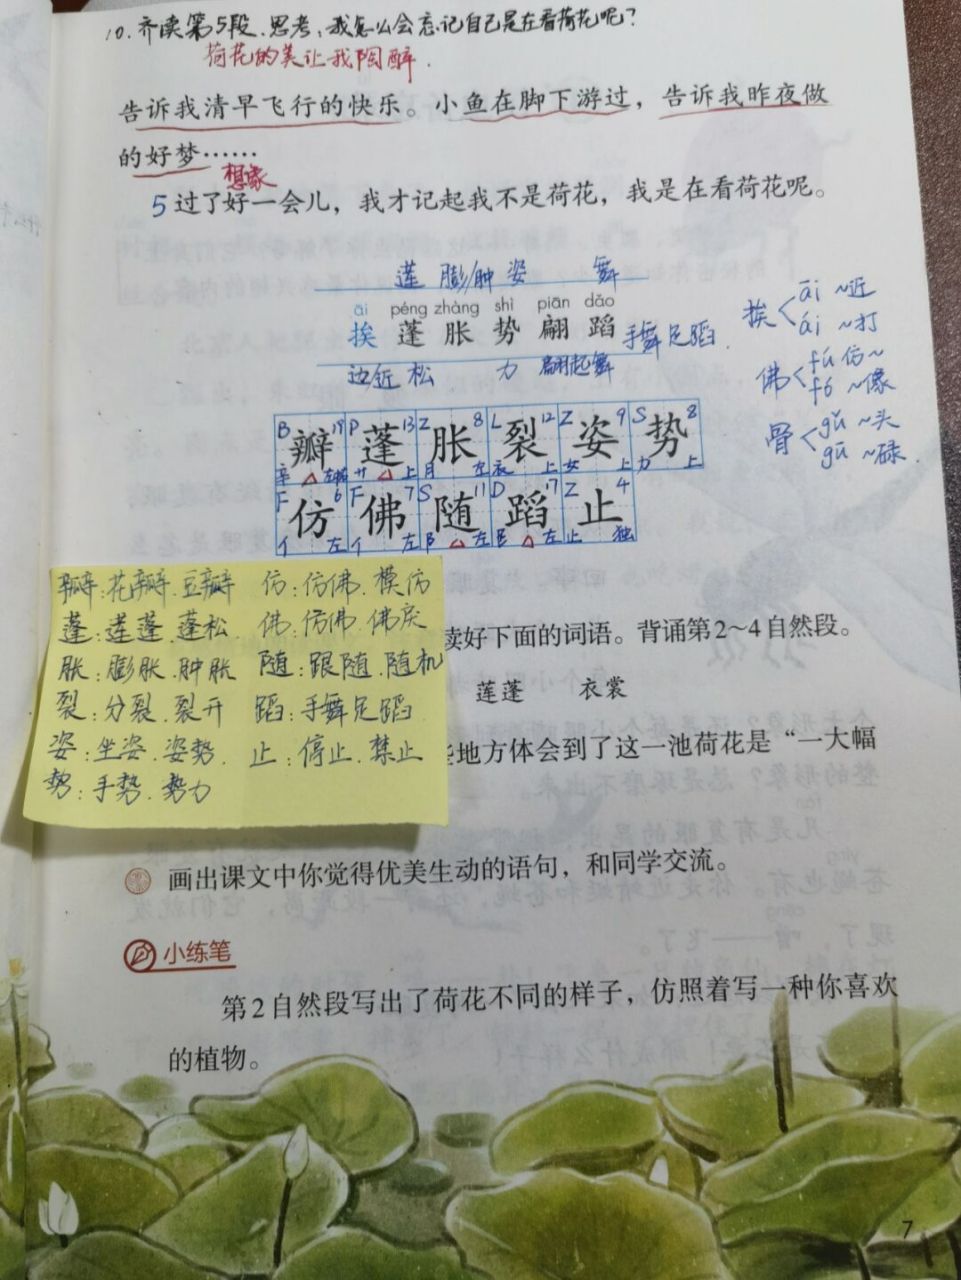 10.齐读第5段.思考:我怎么会忘记自己是在看荷花呢?
荷花的美让我陶醉.
告诉我清早飞行的快乐。小鱼在脚下游过，告诉我昨夜做
的好梦……
想象
5 过了好一会儿，我才记起我不是荷花，我是在看荷花呢。
莲 膨/肿 姿 舞
āi péng zhàng shì piān dǎo
挨 蓬 胀 势 翩 蹈 手舞足蹈.
边近 松 力 翩起舞
挨 āi ~近
ái ~打
佛 fú 仿~
fó ~像
骨 gǔ ~头
gū ~碌
B 19 P 13 Z 8 L 12 Z 9 S 8
瓣 蓬 胀 裂 姿 势
辛 左 艹 上 月 左 衣 上 女 上 力 上
F 6 F 7 S 11 D 17 Z 4
仿 佛 随 蹈 止
亻 左 亻 左 阝 左 左 止 独
瓣:花瓣.豆瓣 仿:仿佛.模仿
蓬:莲蓬.蓬松. 佛:仿佛.佛庆
胀:膨胀.肿胀 随:跟随.随机
裂:分裂.裂开 蹈:手舞足蹈.
姿:坐姿.姿势. 止:停止.禁止
势:手势.势力
读好下面的词语。背诵第2~4自然段。
莲蓬 衣裳
些地方体会到了这一池荷花是“一大幅
画出课文中你觉得优美生动的语句，和同学交流。
小练笔
第2自然段写出了荷花不同的样子，仿照着写一种你喜欢
的植物。
7